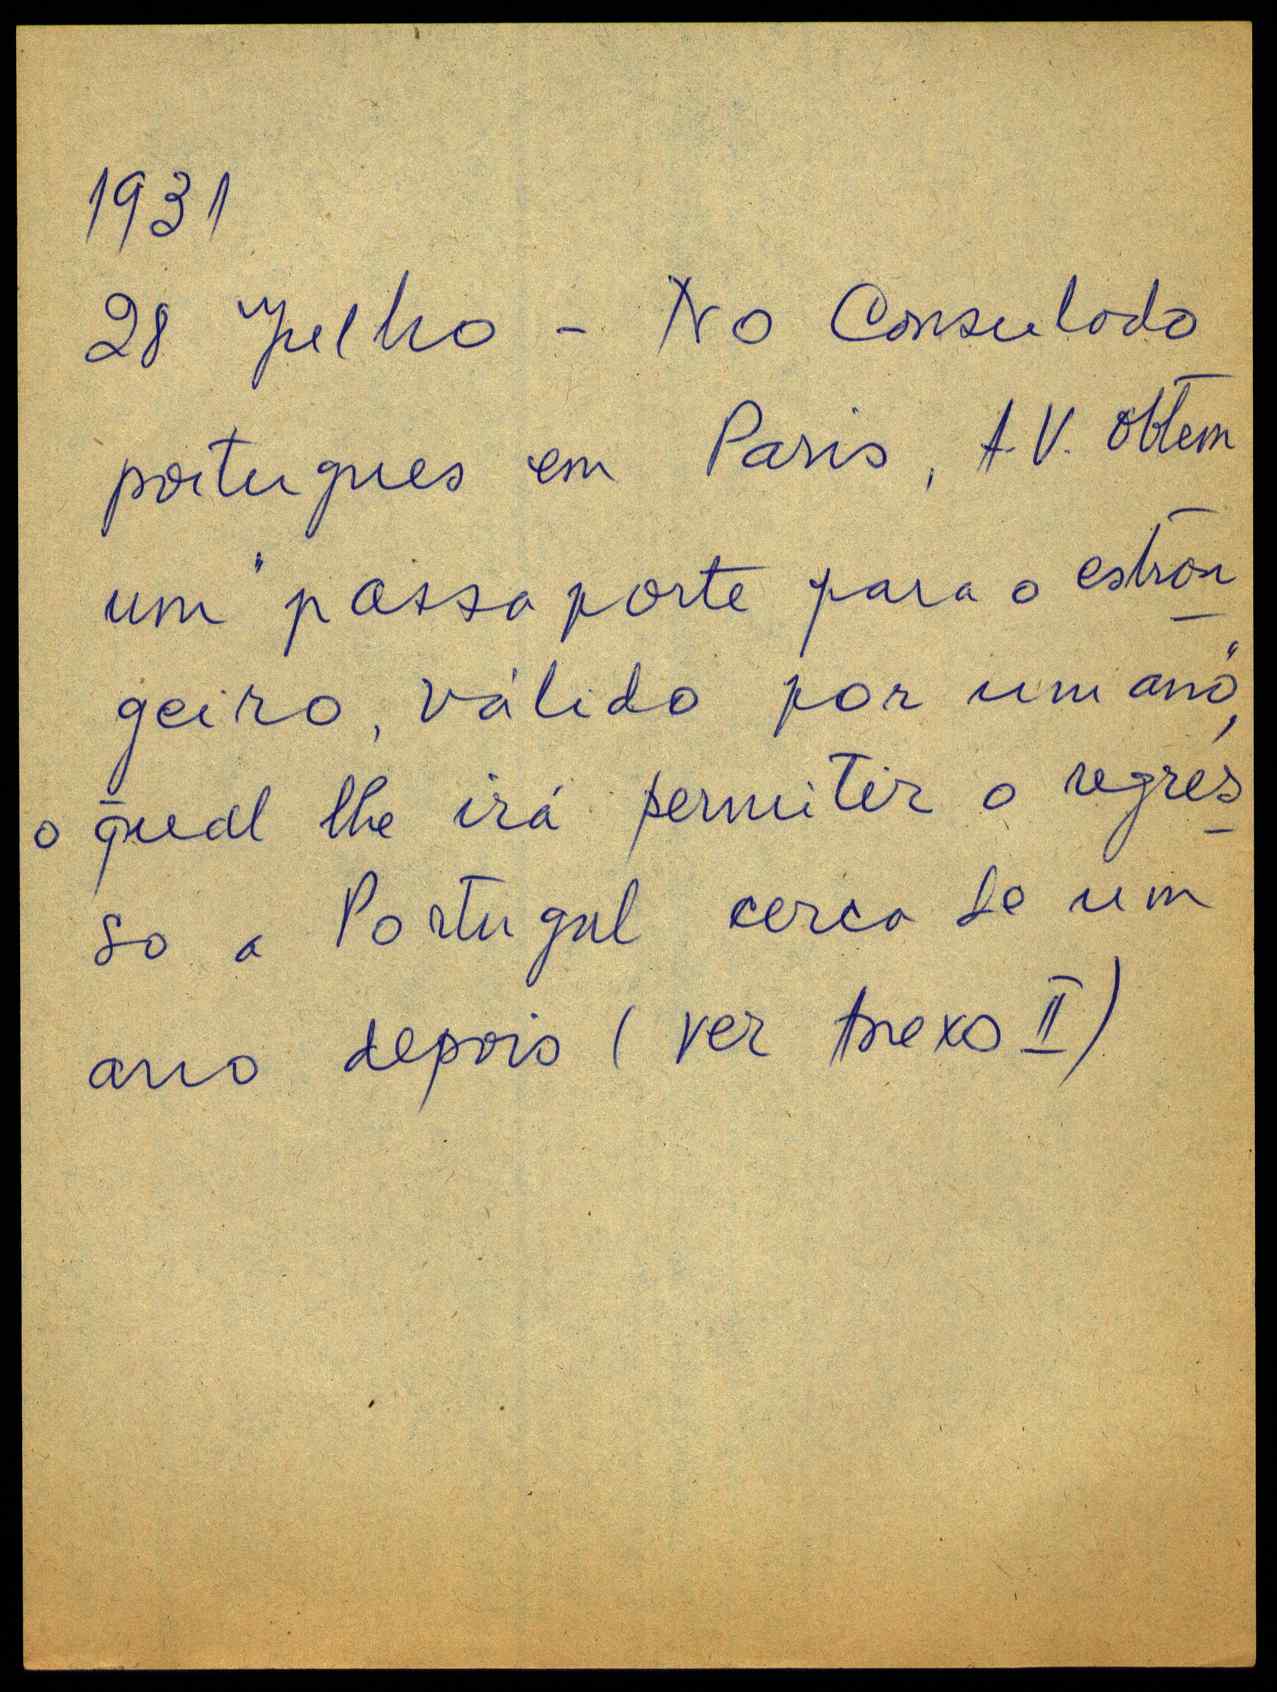 1931
28 Julho - No Consulado
portugues em Paris, A.V. obtem
um "passaporte para o estran
geiro, válido por um ano",
o qual lhe irá permitir o regres
so a Portugal cerca de um
ano depois (ver Anexo II)